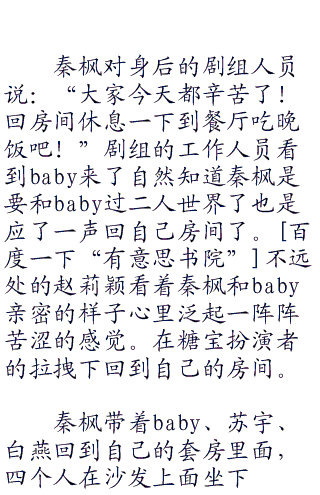 秦枫对身后的剧组人员
说：“大家今天都辛苦了！
回房间休息一下到餐厅吃晚
饭吧！”剧组的工作人员看
到baby来了自然知道秦枫是
要和baby过二人世界了也是
应了一声回自己房间了。[百
度一下“有意思书院”]不远
处的赵莉颖看着秦枫和baby
亲密的样子心里泛起一阵阵
苦涩的感觉。在糖宝扮演者
的拉拽下回到自己的房间。
秦枫带着baby、苏宇、
白燕回到自己的套房里面，
四个人在沙发上面坐下